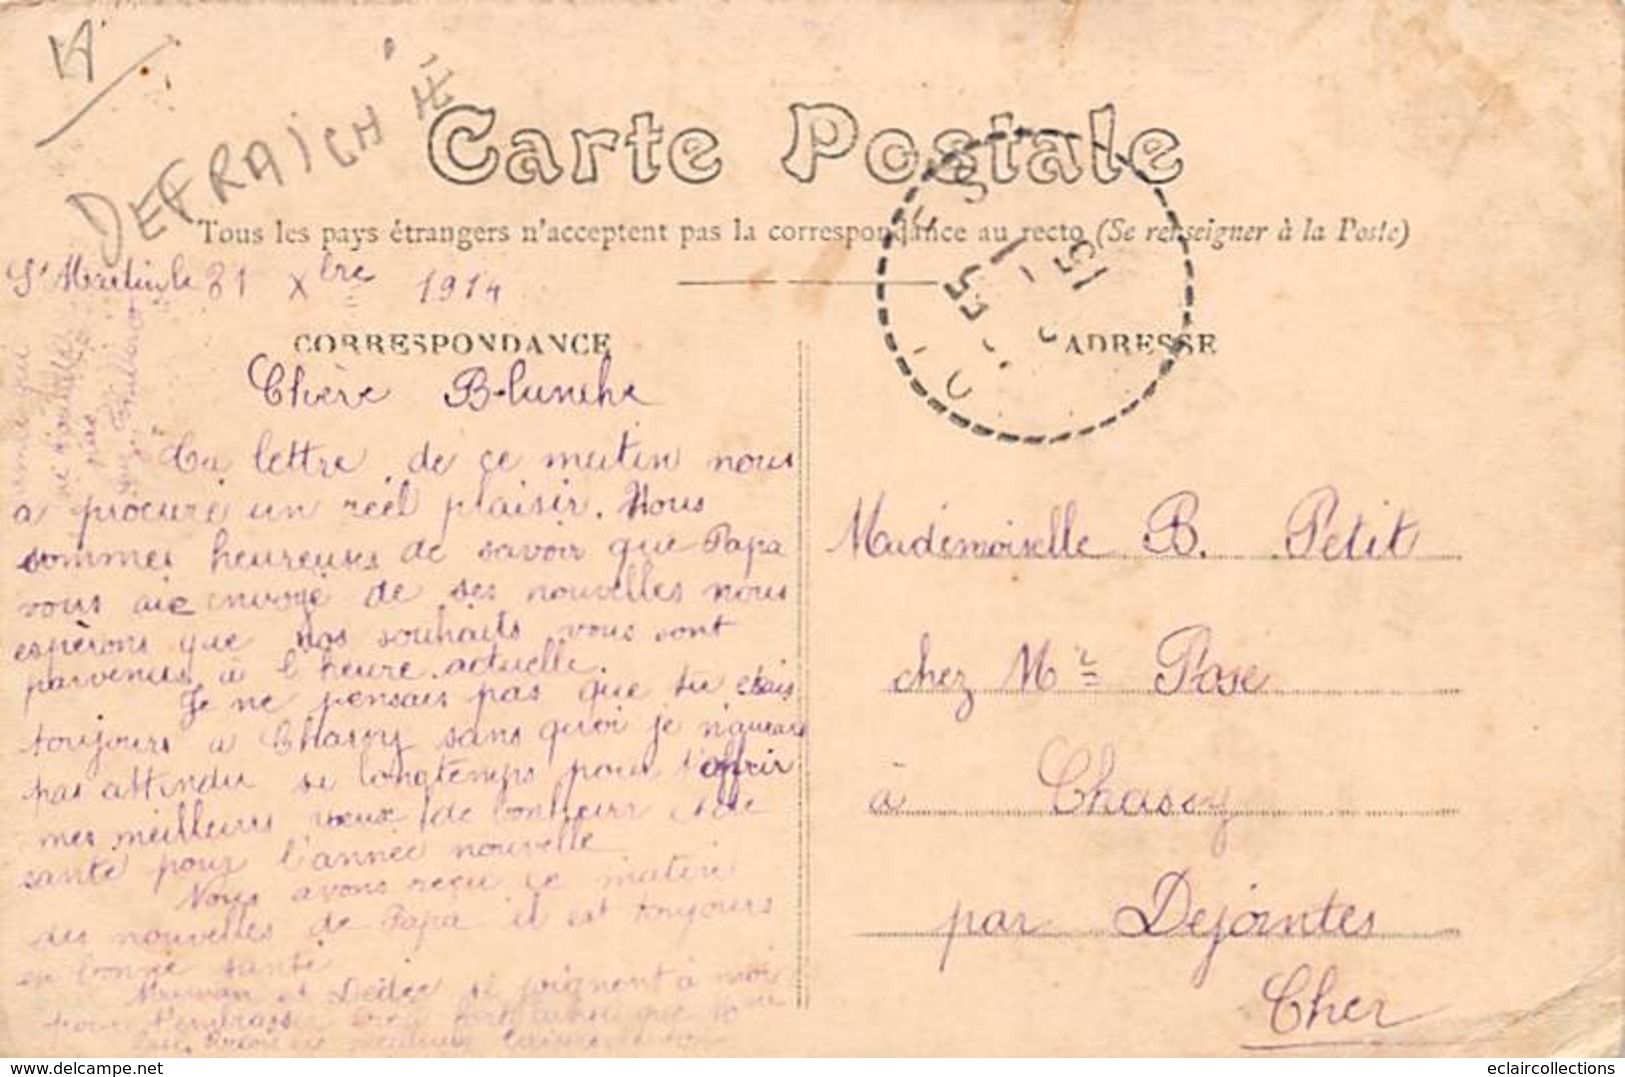 DEFRAICHIE
Carte Postale
Tous les pays étrangers n'acceptent pas la correspondance au recto (Se renseigner à la Poste)
St Martin le 31 Xbre 1914
CORRESPONDANCE
ADRESSE
Chère Blanche
Ta lettre de ce matin nous
a procuré un réel plaisir. Nous
sommes heureuses de savoir que Papa
vous aie envoyé de ses nouvelles nous
espérons que nos souhaits vous sont
parvenus à l'heure actuelle.
Je ne pensais pas que tu étais
toujours à Chassy sans quoi je n'aurais
pas attendu si longtemps pour t'offrir
mes meilleurs vœux de bonheur et de
santé pour l'année nouvelle
Nous avons reçu ce matin
des nouvelles de Papa il est toujours
en bonne santé
Maman et Dédée se joignent à moi
pour t'embrasser bien fort ainsi que
Mademoiselle B. Petit
chez Mr Pose
à Chassy
par Dejointes
Cher
delcampe.net
eclaircollections